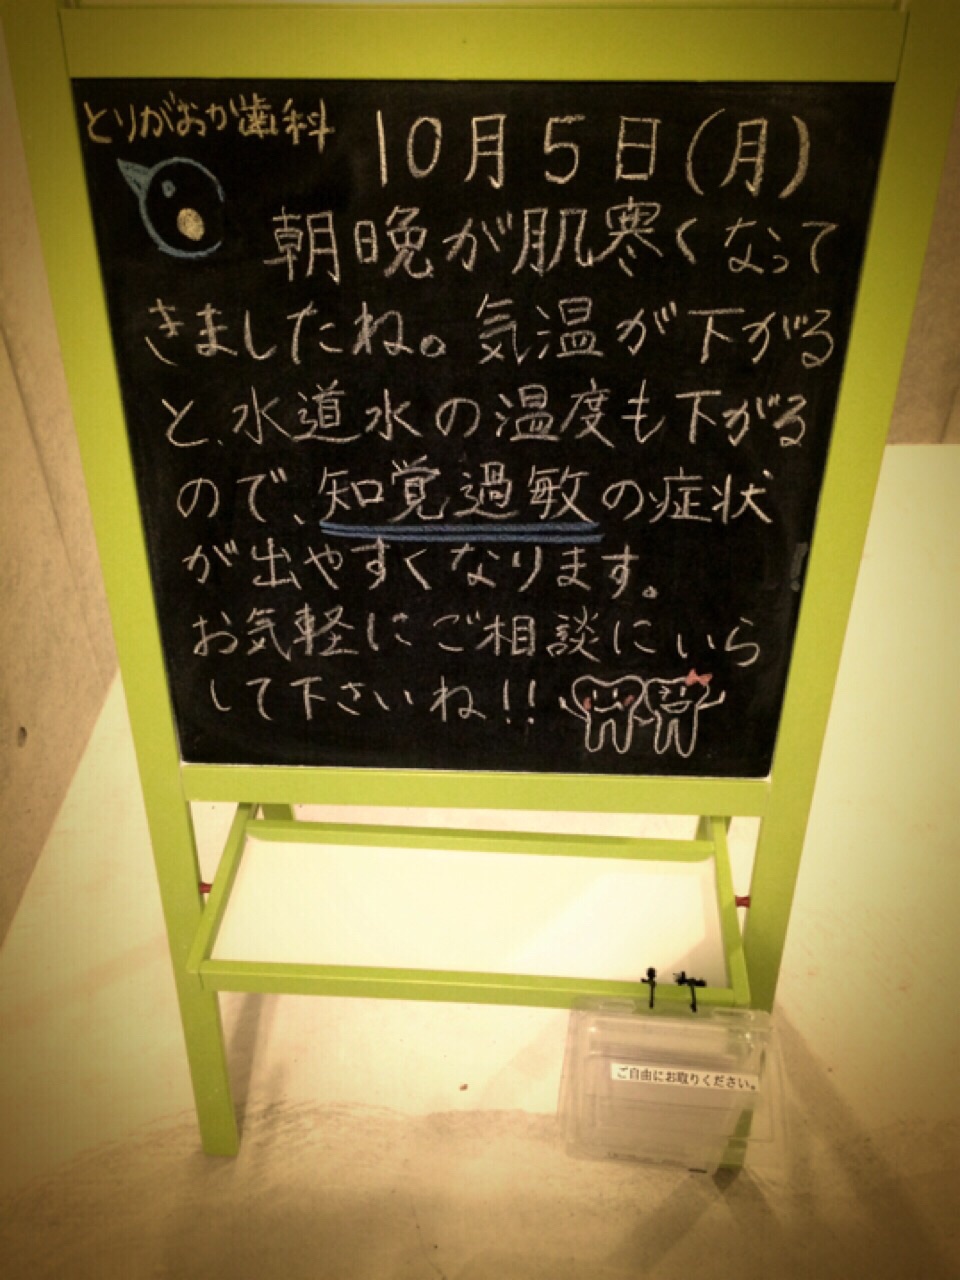 とりがおか歯科
10月5日(月)
朝晩が肌寒くなって
きましたね。気温が下がる
と、水道水の温度も下がる
ので、知覚過敏の症状
が出やすくなります。
お気軽にご相談にいら
して下さいね!!
ご自由にお取りください。